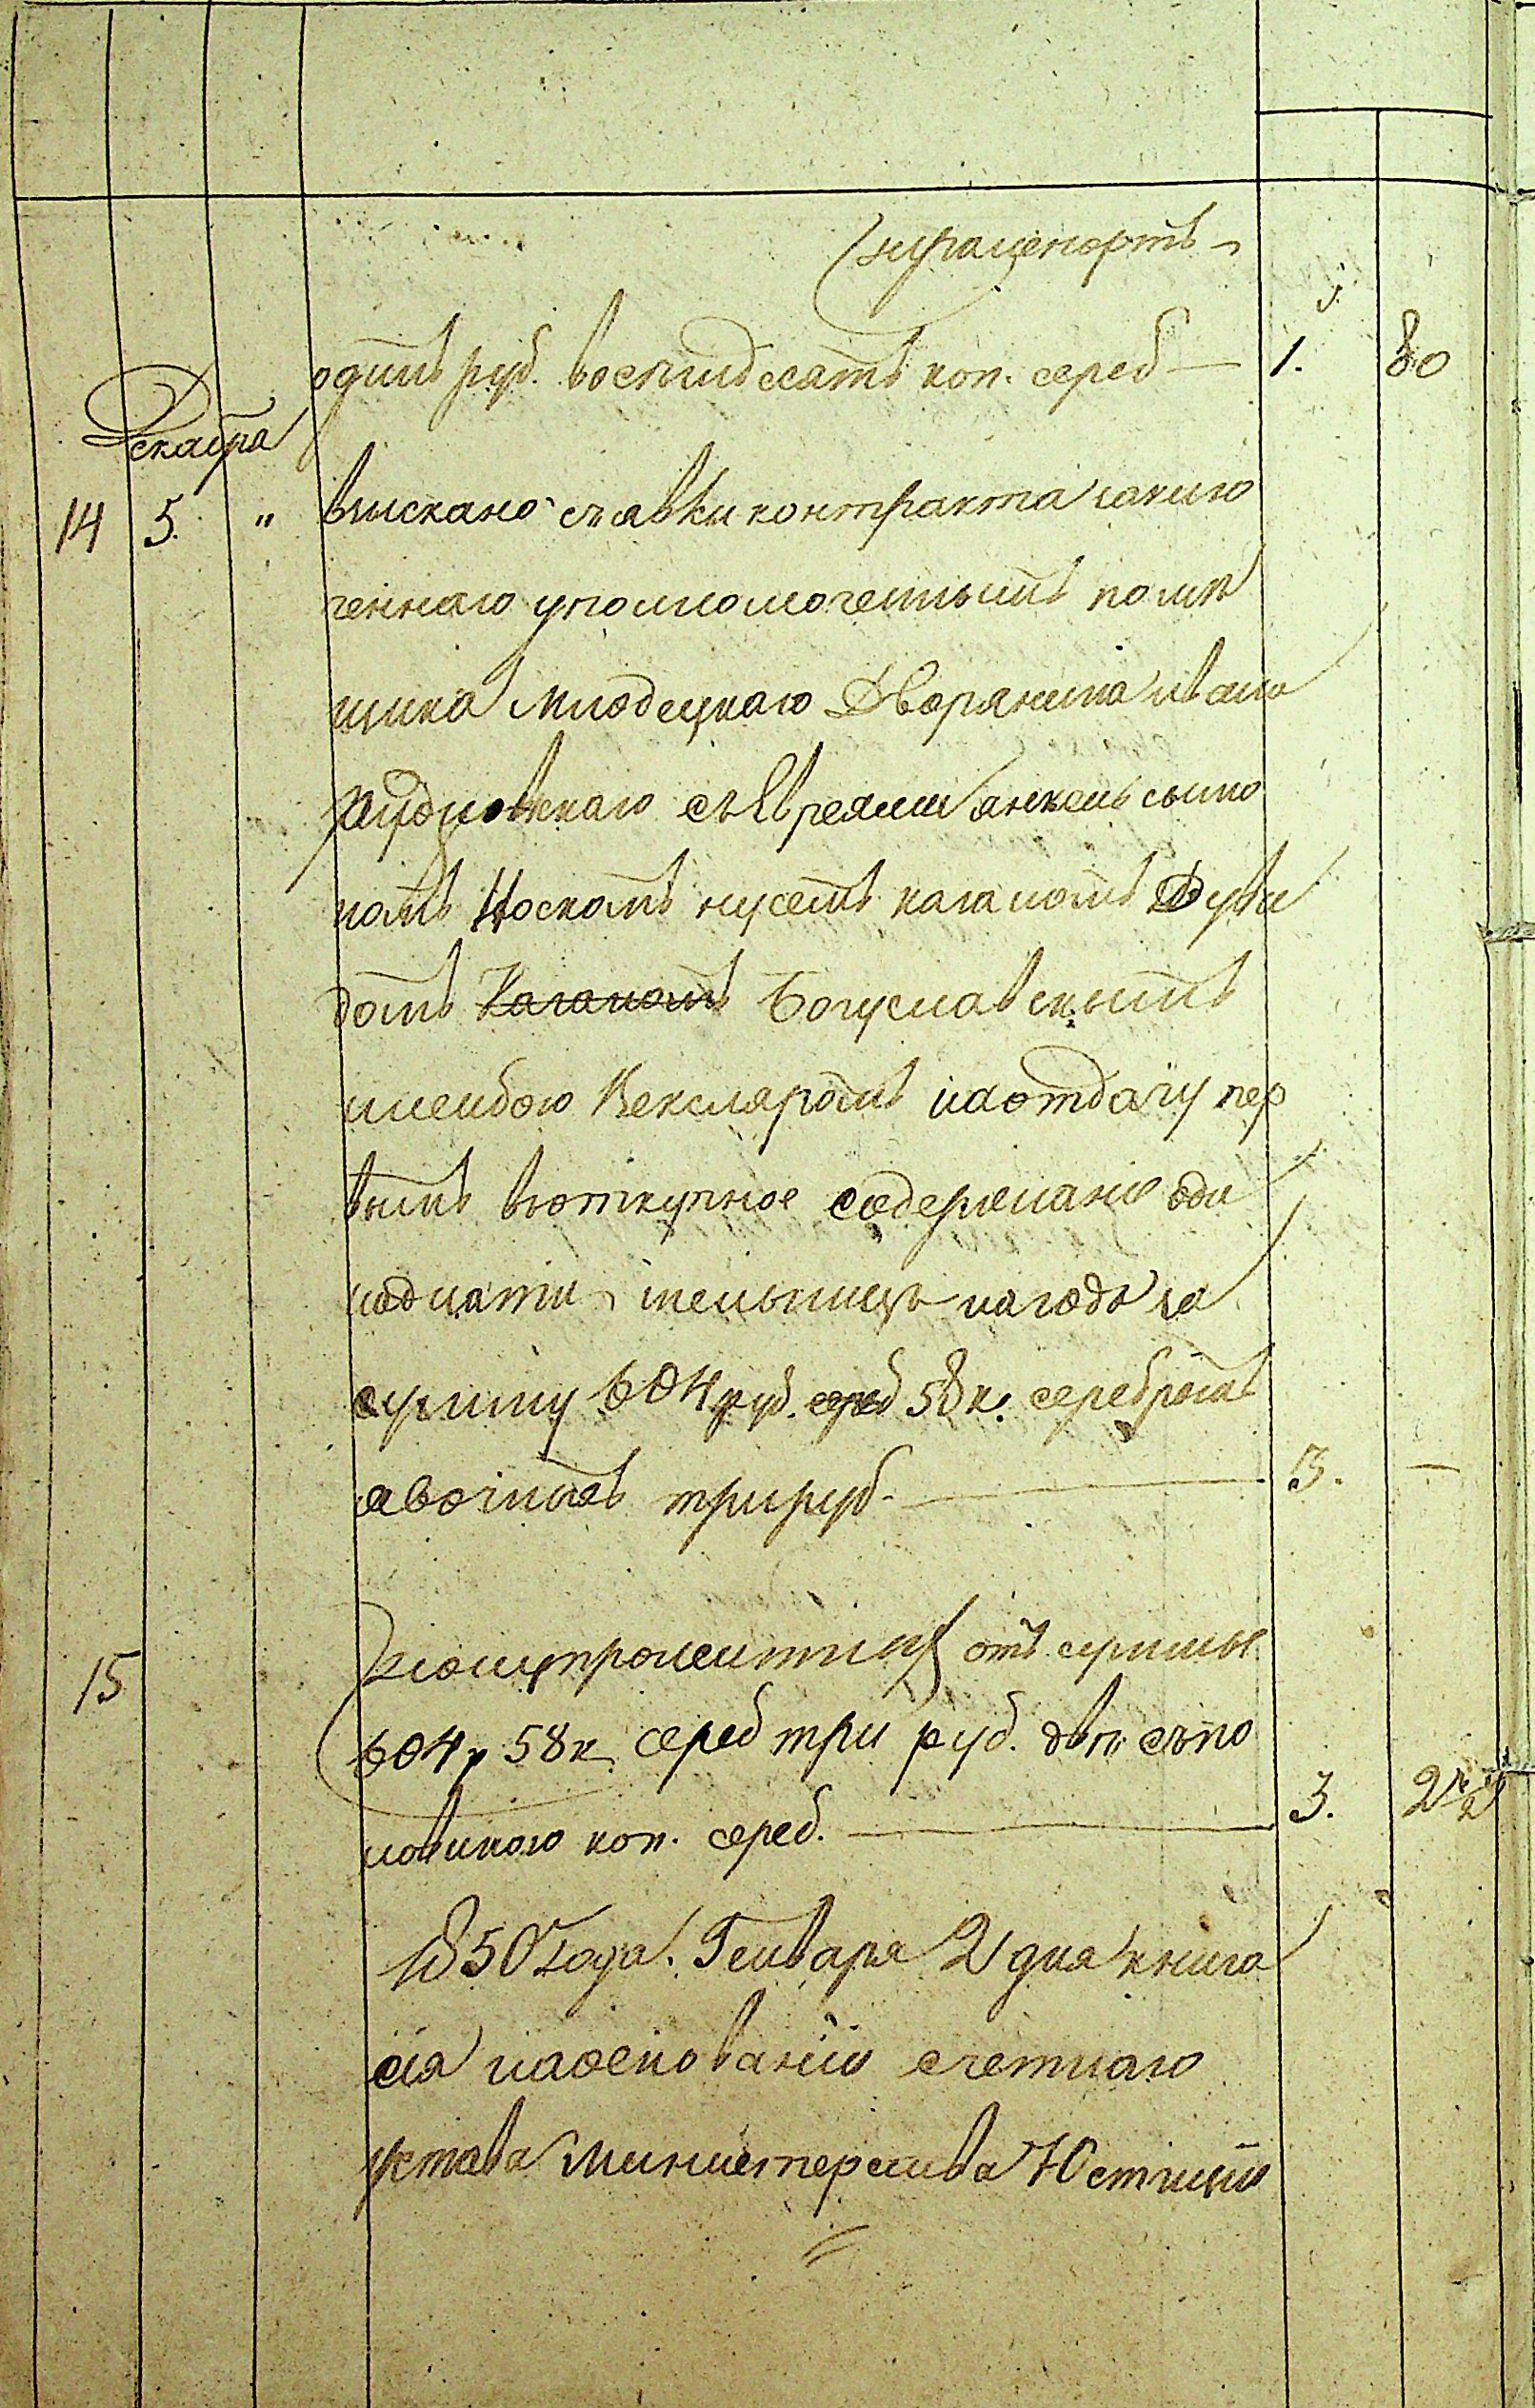 транспортъ
одинъ руб. восемдесятъ коп. сереб — 1. 80
Декабря
14 5. " взискано съ явки контракта заклю
ченнаго уполномоченнымъ помѣ
щика Млодецкаго Дворянина Ивана
съ Евреями сыно
Кагановъ Дуви
домъ Кагановъ Богуславскымъ
и Лейбою Вексляромъ на отдачу пер
вымъ въ откупное содержание оди
надцати мельницъ на годъ за
сумму 604 руб. сереб 58 к. серебромъ
явочныхъ три руб. — 3. —
15 отъ суммы
604 р 58 к сереб три руб. двѣ съ по
ловиною коп. сереб. — 3. 2 ½
1850 года. Генваря 2 дня книга
сія на основаніи счетнаго
устава Министерства Юстиціи